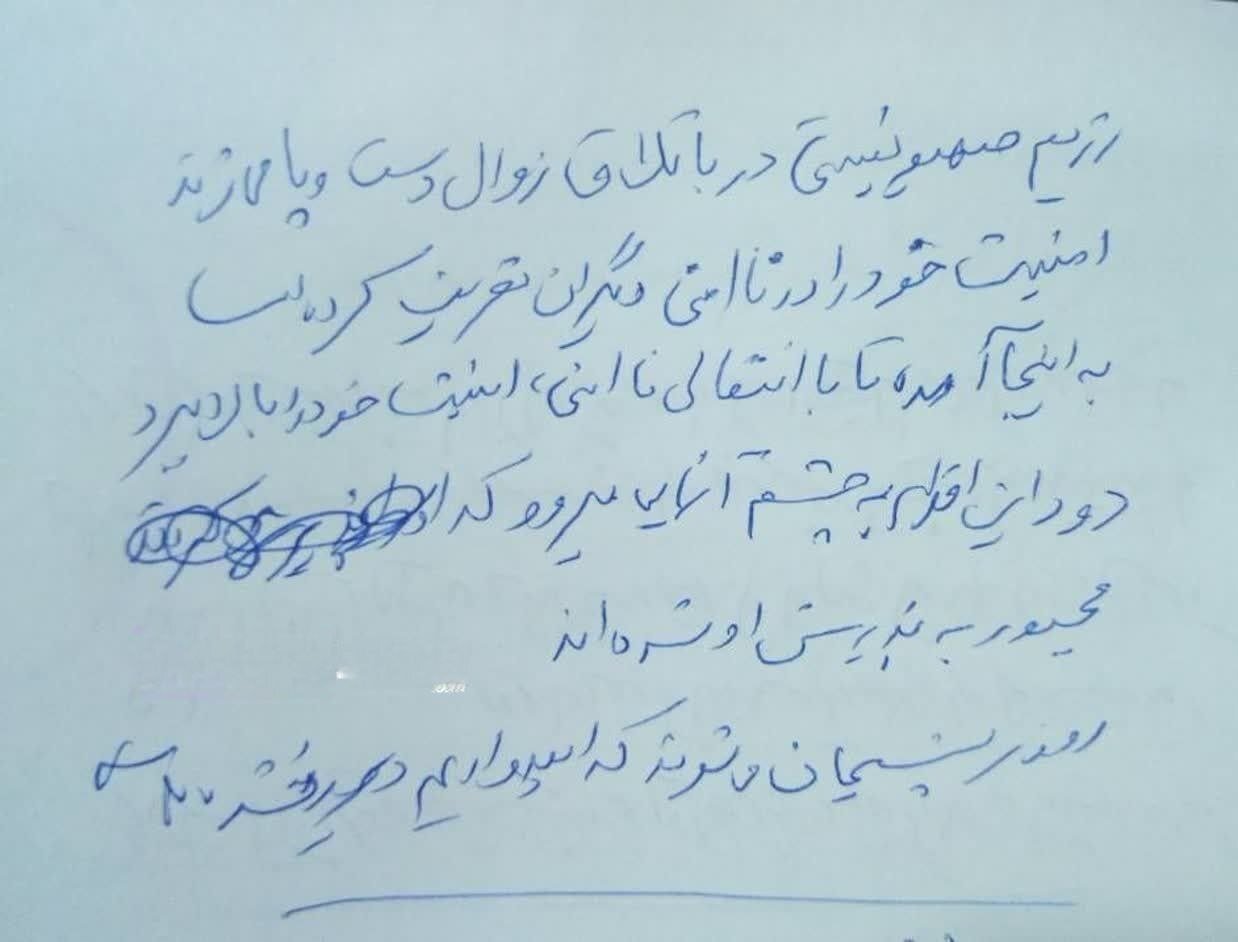 رژیم صهیونیستی در باتلاق زوال دست و پا می زند
امنیت خود را در ناامنی دیگران تعریف کرده است
به اینجا آمده تا با انتقال ناامنی، امنیت خود را بالا ببرد
دود این اقدام به چشم آنهایی میرود که
مجبور به پذیرش او شده اند
روزی پشیمان می شوند که امیدواریم دیر نشده باشد
.com